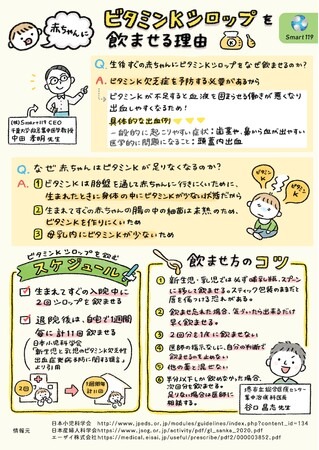 赤ちゃんに
ビタミンKシロップを
飲ませる理由
Smart119
(株)Smart119 CEO
千葉大学救急集中医学教授
中田 孝明氏
Q. 生後すぐの赤ちゃんにビタミンKシロップをなぜ飲ませるのか?
A. ビタミンK欠乏症を予防する必要があるから
ビタミンKが不足すると血液を固まらせる働きが悪くなり
出血しやすくなるため!
具体的な出血例
一般的に起こりやすい症状:歯茎や、鼻から血が出やすい
医学的に問題になること:頭蓋内出血
Q. なぜ赤ちゃんはビタミンKが足りなくなるのか?
A.
① ビタミンKは胎盤を通して赤ちゃんに行きにくいために、
生まれたときに身体の中にビタミンKが少ない状態だから
② 生まれてすぐの赤ちゃんの腸の中の細菌は未熟のため、
ビタミンKを作りにくいため
③ 母乳内にビタミンKが少ないため
ビタミンK
ビタミンK
ビタミンKシロップを飲む
スケジュール
生まれてすぐの入院中に
2回シロップを飲ませる
退院後は、自宅で1週間
毎に計11回飲ませる
日本小児科学会
「新生児と乳児のビタミンK欠乏性
出血症発症予防に関する提言」
より引用
2回
1週間毎
計11回
飲ませ方のコツ
① 新生児・乳児では必ず哺乳瓶、スプーン
に移して飲ませる。スティック包装のままだと
唇を傷つける恐れがある。
② 飲ませ忘れた場合、気づいたら出来るだけ
早く飲ませる。
③ 2回分を1度に飲ませない
④ 医師の指示なしに、自分の判断で
飲ませるのを止めない
⑤ 他の薬と混ぜない
⑥ 半分以下しか飲めなかった場合、
次回分を飲ませる。
足りない場合は医師に
相談する。
集中治療科医長
谷口 昌志先生
情報元
日本小児科学会 http://www.jpeds.or.jp/modules/guidelines/index.php?content_id=134
日本産婦人科学会https://www.jsog.or.jp/activity/pdf/gl_sanka_2020.pdf
エーザイ株式会社https://medical.eisai.jp/useful/prescribe/pdf2/000003852.pdf